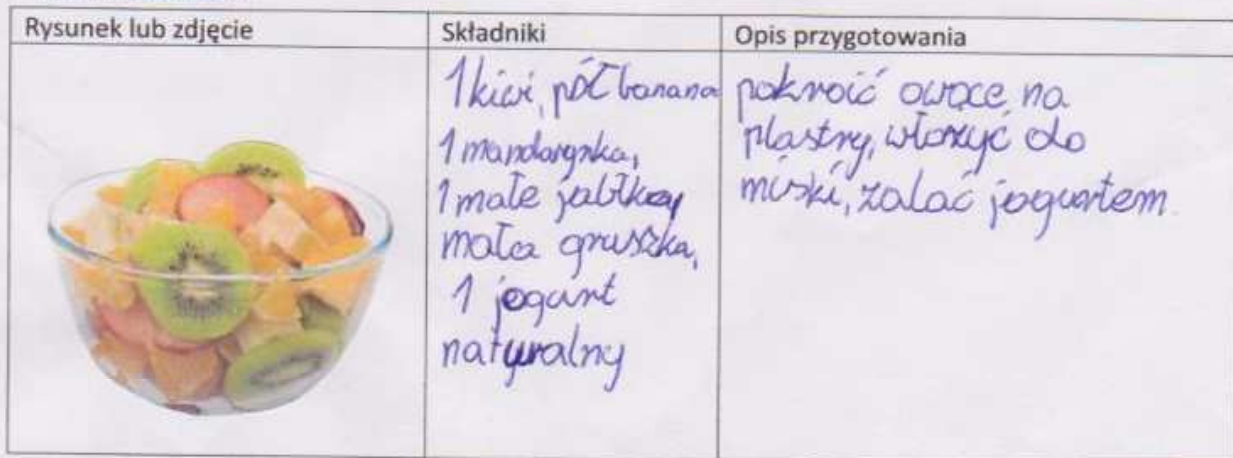 Rysunek lub zdjęcie
Składniki
Opis przygotowania
1 kiwi, pół banana
1 mandarynka,
1 małe jabłko,
mała gruszka,
1 jogurt
naturalny
pokroić owoce na
plastry, włożyć do
miski, zalać jogurtem.